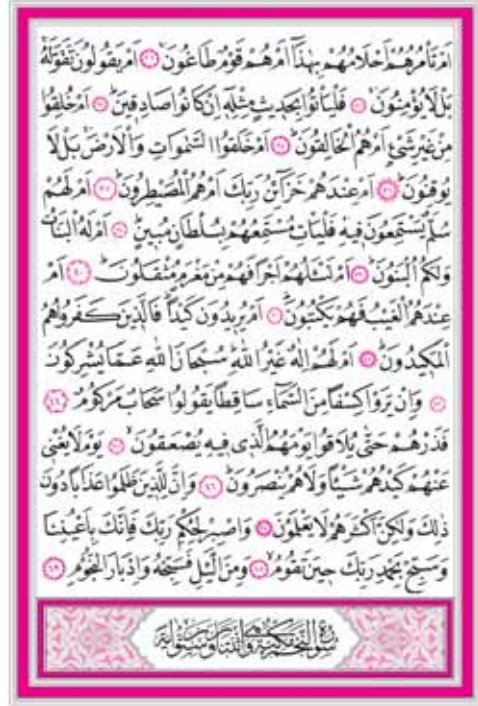 اَمْ تَأْمُرُهُمْ اَحْلَامُهُمْ بِهٰذَٓا اَمْ هُمْ قَوْمٌ طَاغُونَۚ ﴿٣٢﴾ اَمْ يَقُولُونَ تَقَوَّلَهُۚ
بَلْ لَا يُؤْمِنُونَۚ ﴿٣٣﴾ فَلْيَأْتُوا بِحَد۪يثٍ مِثْلِه۪ٓ اِنْ كَانُوا صَادِق۪ينَۜ ﴿٣٤﴾ اَمْ خُلِقُوا
مِنْ غَيْرِ شَيْءٍ اَمْ هُمُ الْخَالِقُونَۜ ﴿٣٥﴾ اَمْ خَلَقُوا السَّمٰوَاتِ وَالْاَرْضَۚ بَلْ لَا
يُوقِنُونَۜ ﴿٣٦﴾ اَمْ عِنْدَهُمْ خَزَٓائِنُ رَبِّكَ اَمْ هُمُ الْمُصَيْطِرُونَۜ ﴿٣٧﴾ اَمْ لَهُمْ
سُلَّمٌ يَسْتَمِعُونَ ف۪يهِۚ فَلْيَأْتِ مُسْتَمِعُهُمْ بِسُلْطَانٍ مُب۪ينٍۜ ﴿٣٨﴾ اَمْ لَهُ الْبَنَاتُ
وَلَكُمُ الْبَنُونَۜ ﴿٣٩﴾ اَمْ تَسْـَٔلُهُمْ اَجْرًا فَهُمْ مِنْ مَغْرَمٍ مُثْقَلُونَۜ ﴿٤٠﴾ اَمْ
عِنْدَهُمُ الْغَيْبُ فَهُمْ يَكْتُبُونَۜ ﴿٤١﴾ اَمْ يُر۪يدُونَ كَيْدًاۜ فَالَّذ۪ينَ كَفَرُوا هُمُ
الْمَك۪يدُونَۜ ﴿٤٢﴾ اَمْ لَهُمْ اِلٰهٌ غَيْرُ اللّٰهِۜ سُبْحَانَ اللّٰهِ عَمَّا يُشْرِكُونَ
﴿٤٣﴾ وَاِنْ يَرَوْا كِسْفًا مِنَ السَّمَٓاءِ سَاقِطًا يَقُولُوا سَحَابٌ مَرْكُومٌ ﴿٤٤﴾
فَذَرْهُمْ حَتّٰى يُلَاقُوا يَوْمَهُمُ الَّذ۪ي ف۪يهِ يُصْعَقُونَۙ ﴿٤٥﴾ يَوْمَ لَا يُغْن۪ي
عَنْهُمْ كَيْدُهُمْ شَيْـًٔا وَلَا هُمْ يُنْصَرُونَۜ ﴿٤٦﴾ وَاِنَّ لِلَّذ۪ينَ ظَلَمُوا عَذَابًا دُونَ
ذٰلِكَ وَلٰكِنَّ اَكْثَرَهُمْ لَا يَعْلَمُونَ ﴿٤٧﴾ وَاصْبِرْ لِحُكْمِ رَبِّكَ فَاِنَّكَ بِاَعْيُنِنَا
وَسَبِّحْ بِحَمْدِ رَبِّكَ ح۪ينَ تَقُومُۙ ﴿٤٨﴾ وَمِنَ الَّيْلِ فَسَبِّحْهُ وَاِدْبَارَ النُّجُومِ ﴿٤٩﴾
سُورَةُ النَّجْمِ مَكِّيَّةٌ وَهِيَ اثْنَتَانِ وَسِتُّونَ اٰيَةً